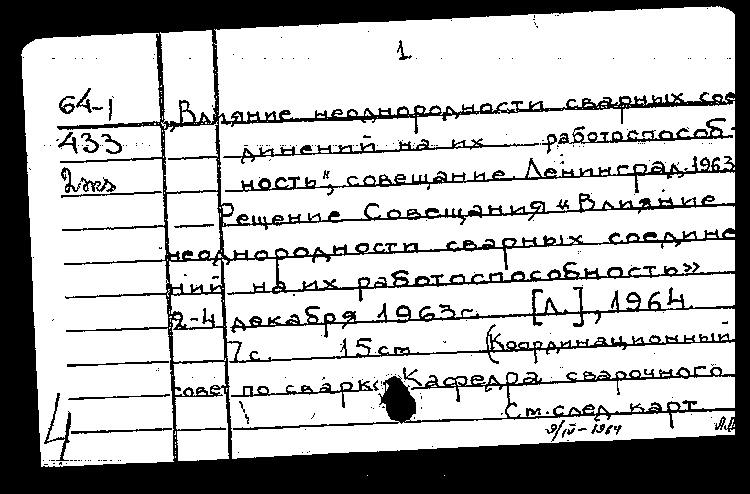 1
64-1 „Влияние неоднородности сварных сое
433 динений на их работоспособ-
2экз ность", совещание. Ленинград. 1963
Решение Совещания „Влияние
неоднородности сварных соедине
ний на их работоспособность"
2-4 декабря 1963г. [Л.], 1964.
7с. 15cm (Координационный
совет по сварке. Кафедра сварочного
4 См. след. карт
9/IV-1964